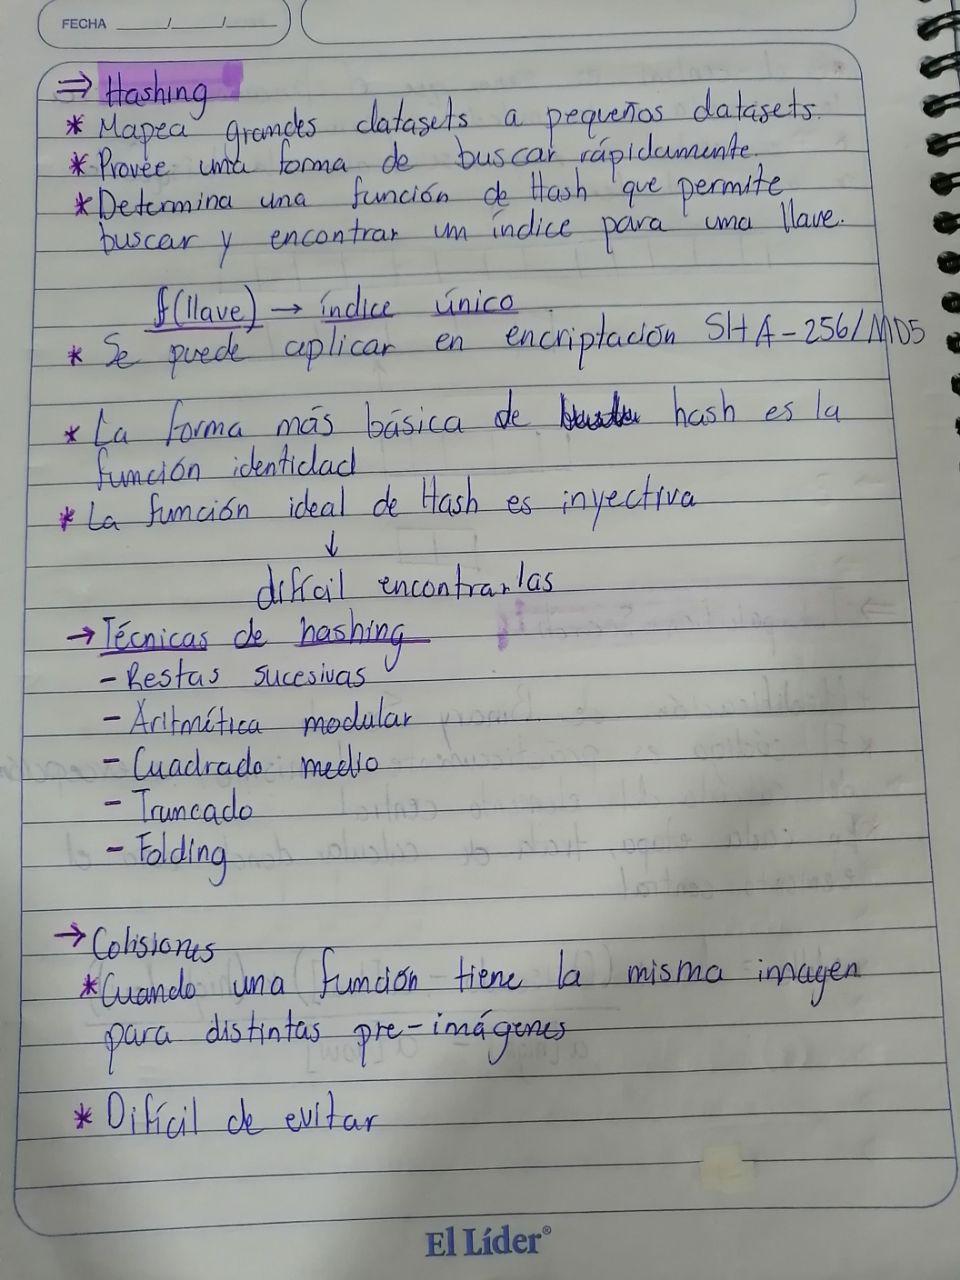 FECHA ___/___/___
⇒ Hashing
* Mapea grandes datasets a pequeños datasets.
* Provee una forma de buscar rápidamente.
* Determina una función de Hash que permite
buscar y encontrar un índice para una llave.
f(llave) → índice único
* Se puede aplicar en encriptación SHA-256/MD5
* La forma más básica de hash es la
función identidad
* La función ideal de Hash es inyectiva
↓
difícil encontrarlas
→ Técnicas de hashing
- Restas sucesivas
- Aritmética modular
- Cuadrado medio
- Truncado
- Folding
→ Colisiones
* Cuando una función tiene la misma imagen
para distintas pre-imágenes
* Difícil de evitar
El Líder®